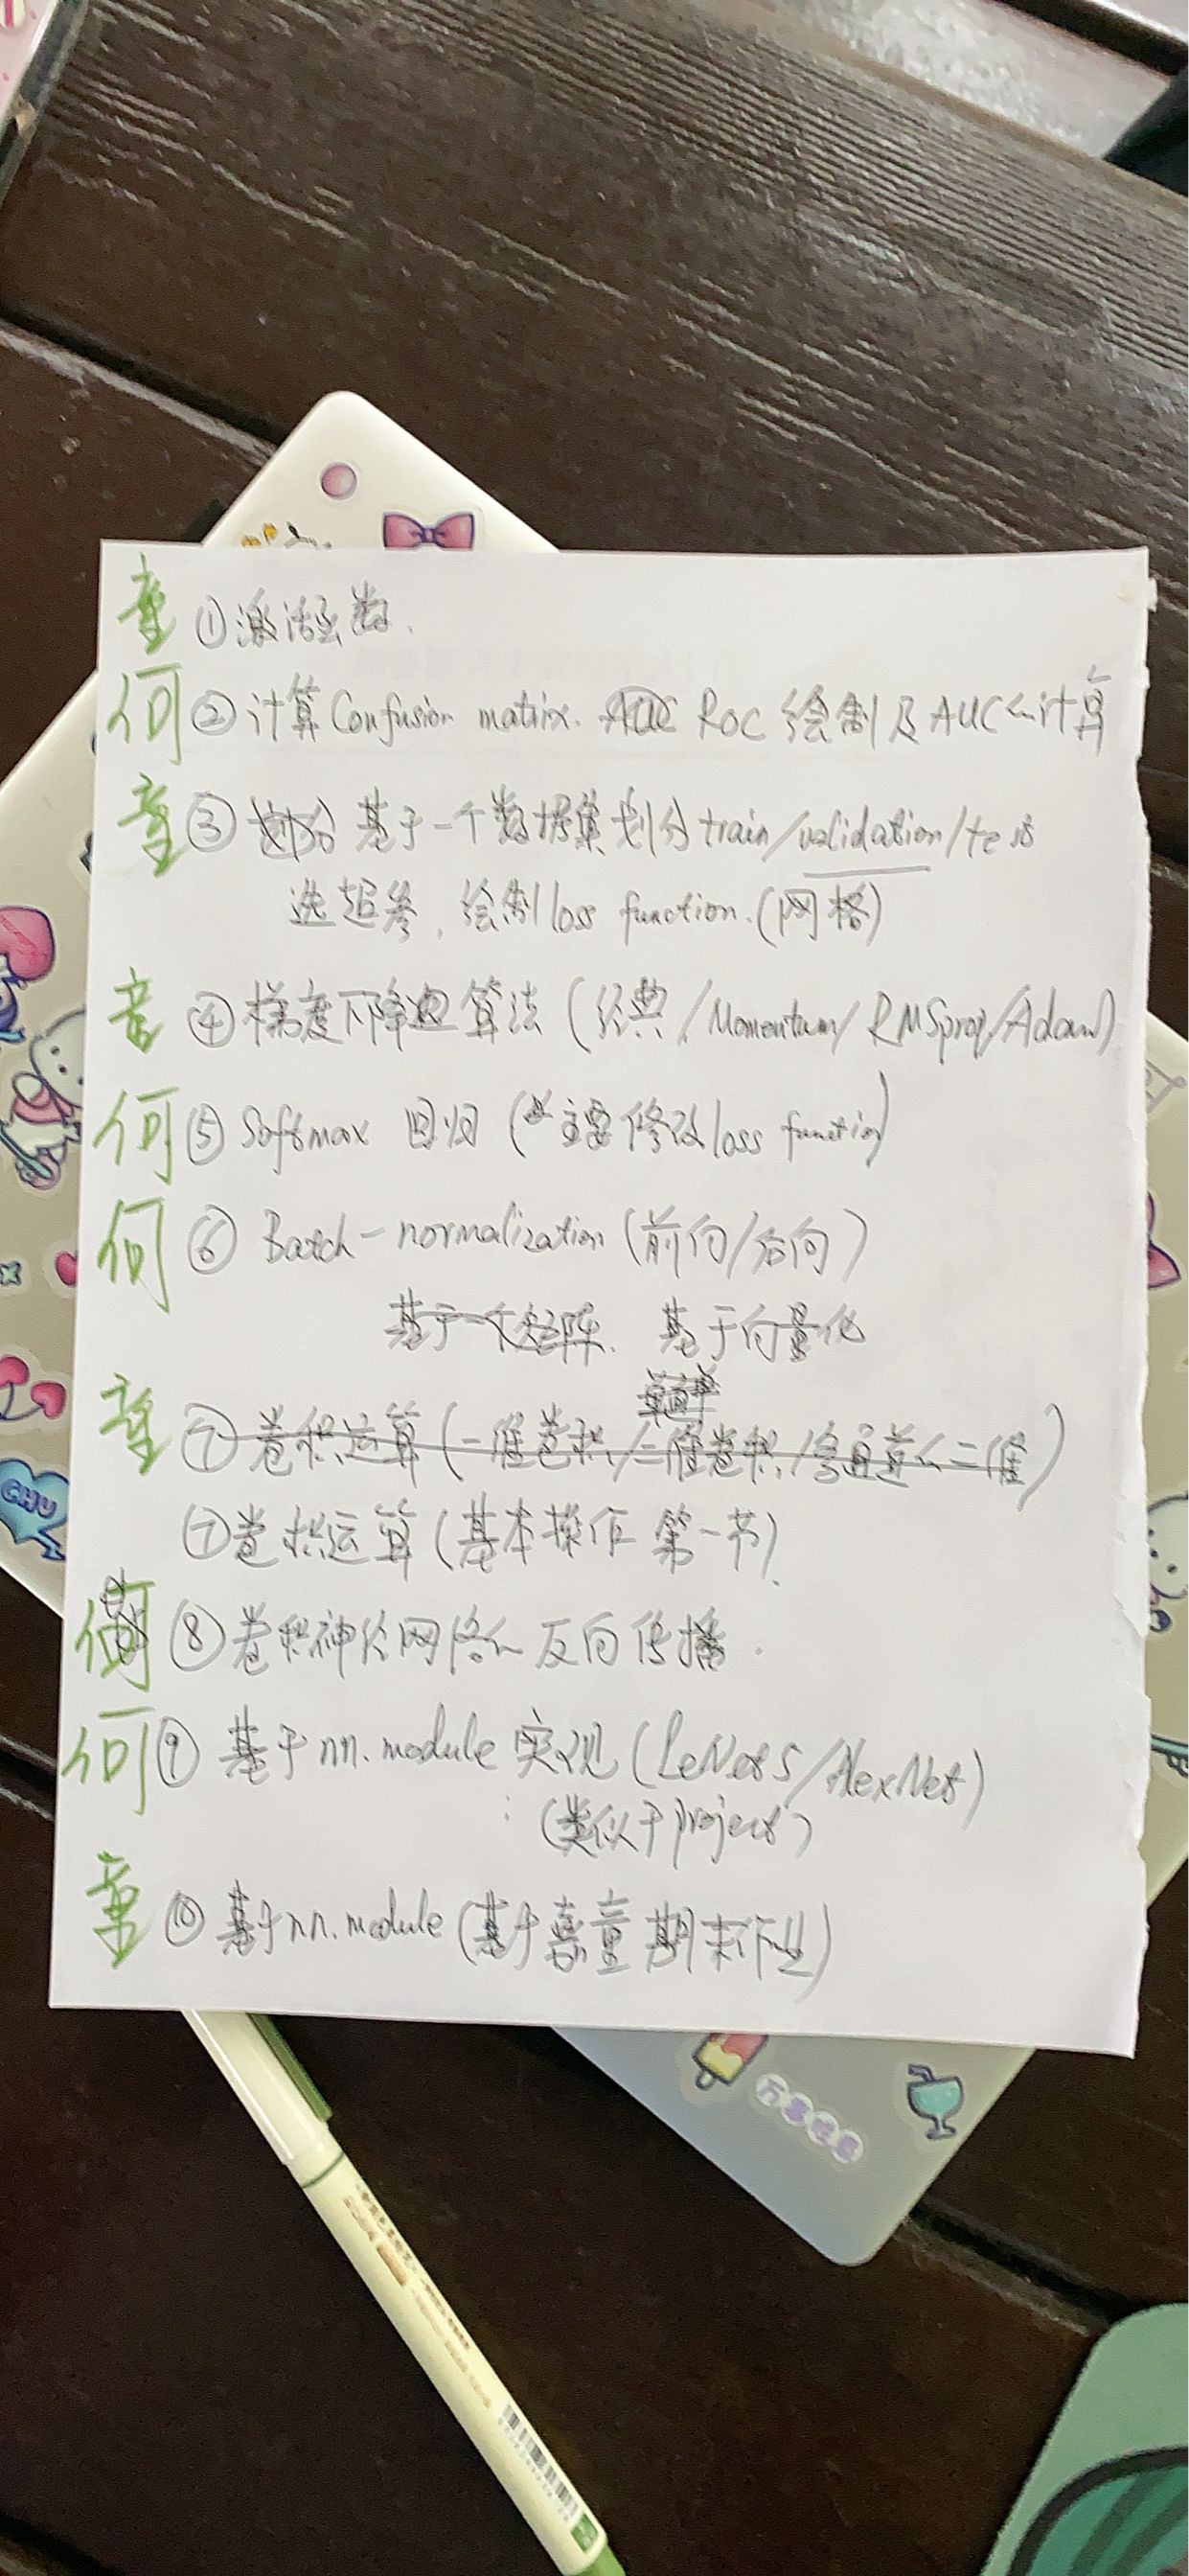 童 ①激活函数.
何 ②计算Confusion matrix. ROC 绘制及AUC的计算
童 ③ 划分 基于一个数据集划分train/validation/test
选超参, 绘制loss function.(网格)
童 ④梯度下降算法(经典/Momentum/RMSprop/Adam)
何 ⑤ Softmax 回归(主要修改loss function)
何 ⑥ Batch-normalization(前向/后向)
基于一个矩阵. 基于向量化
童 ⑦卷积运算(一维卷积/二维卷积/多通道的二维)
⑦卷积运算(基本操作 第一节).
何 ⑧卷积神经网络的反向传播.
何 ⑨ 基于nn.module 实现(LeNet5/AlexNet)
(类似于project)
童 ⑩基于nn.module(基于童期末作业)
CHU